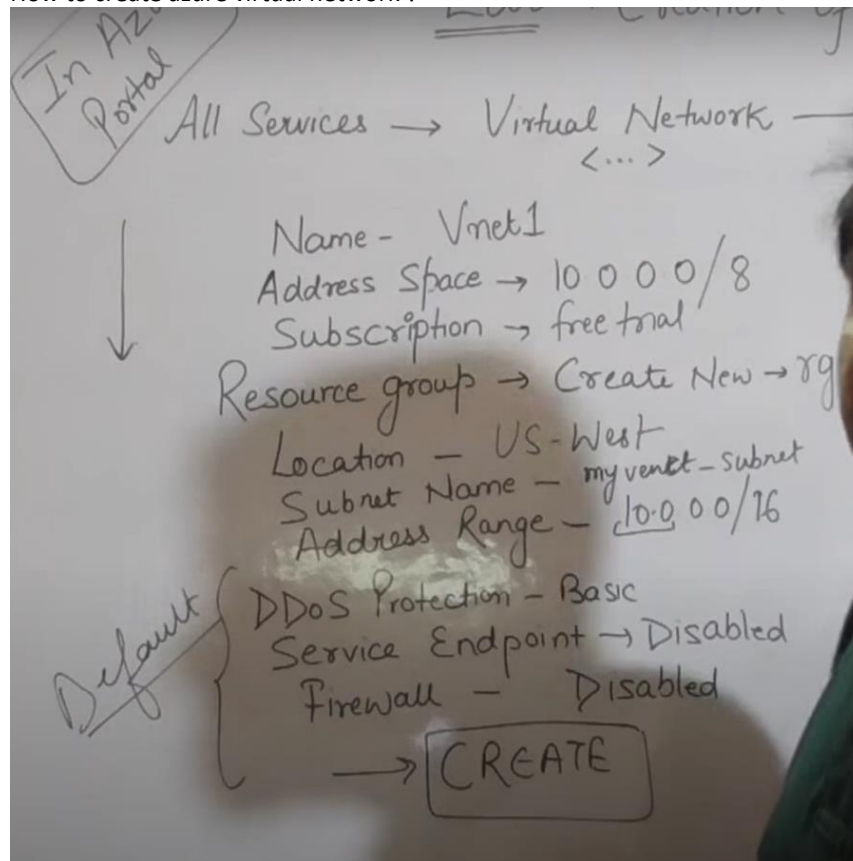 How to create azure virtual network?
In Az
Portal
All Services → Virtual Network —
<...>
Name - Vnet1
Address Space → 10 0 0 0/8
Subscription → free trial
Resource group → Create New → rg
Location — US-West
Subnet Name — myvenet_subnet
Address Range — 10.0 0 0/16
Default
DDoS Protection - Basic
Service Endpoint → Disabled
Firewall — Disabled
→ CREATE